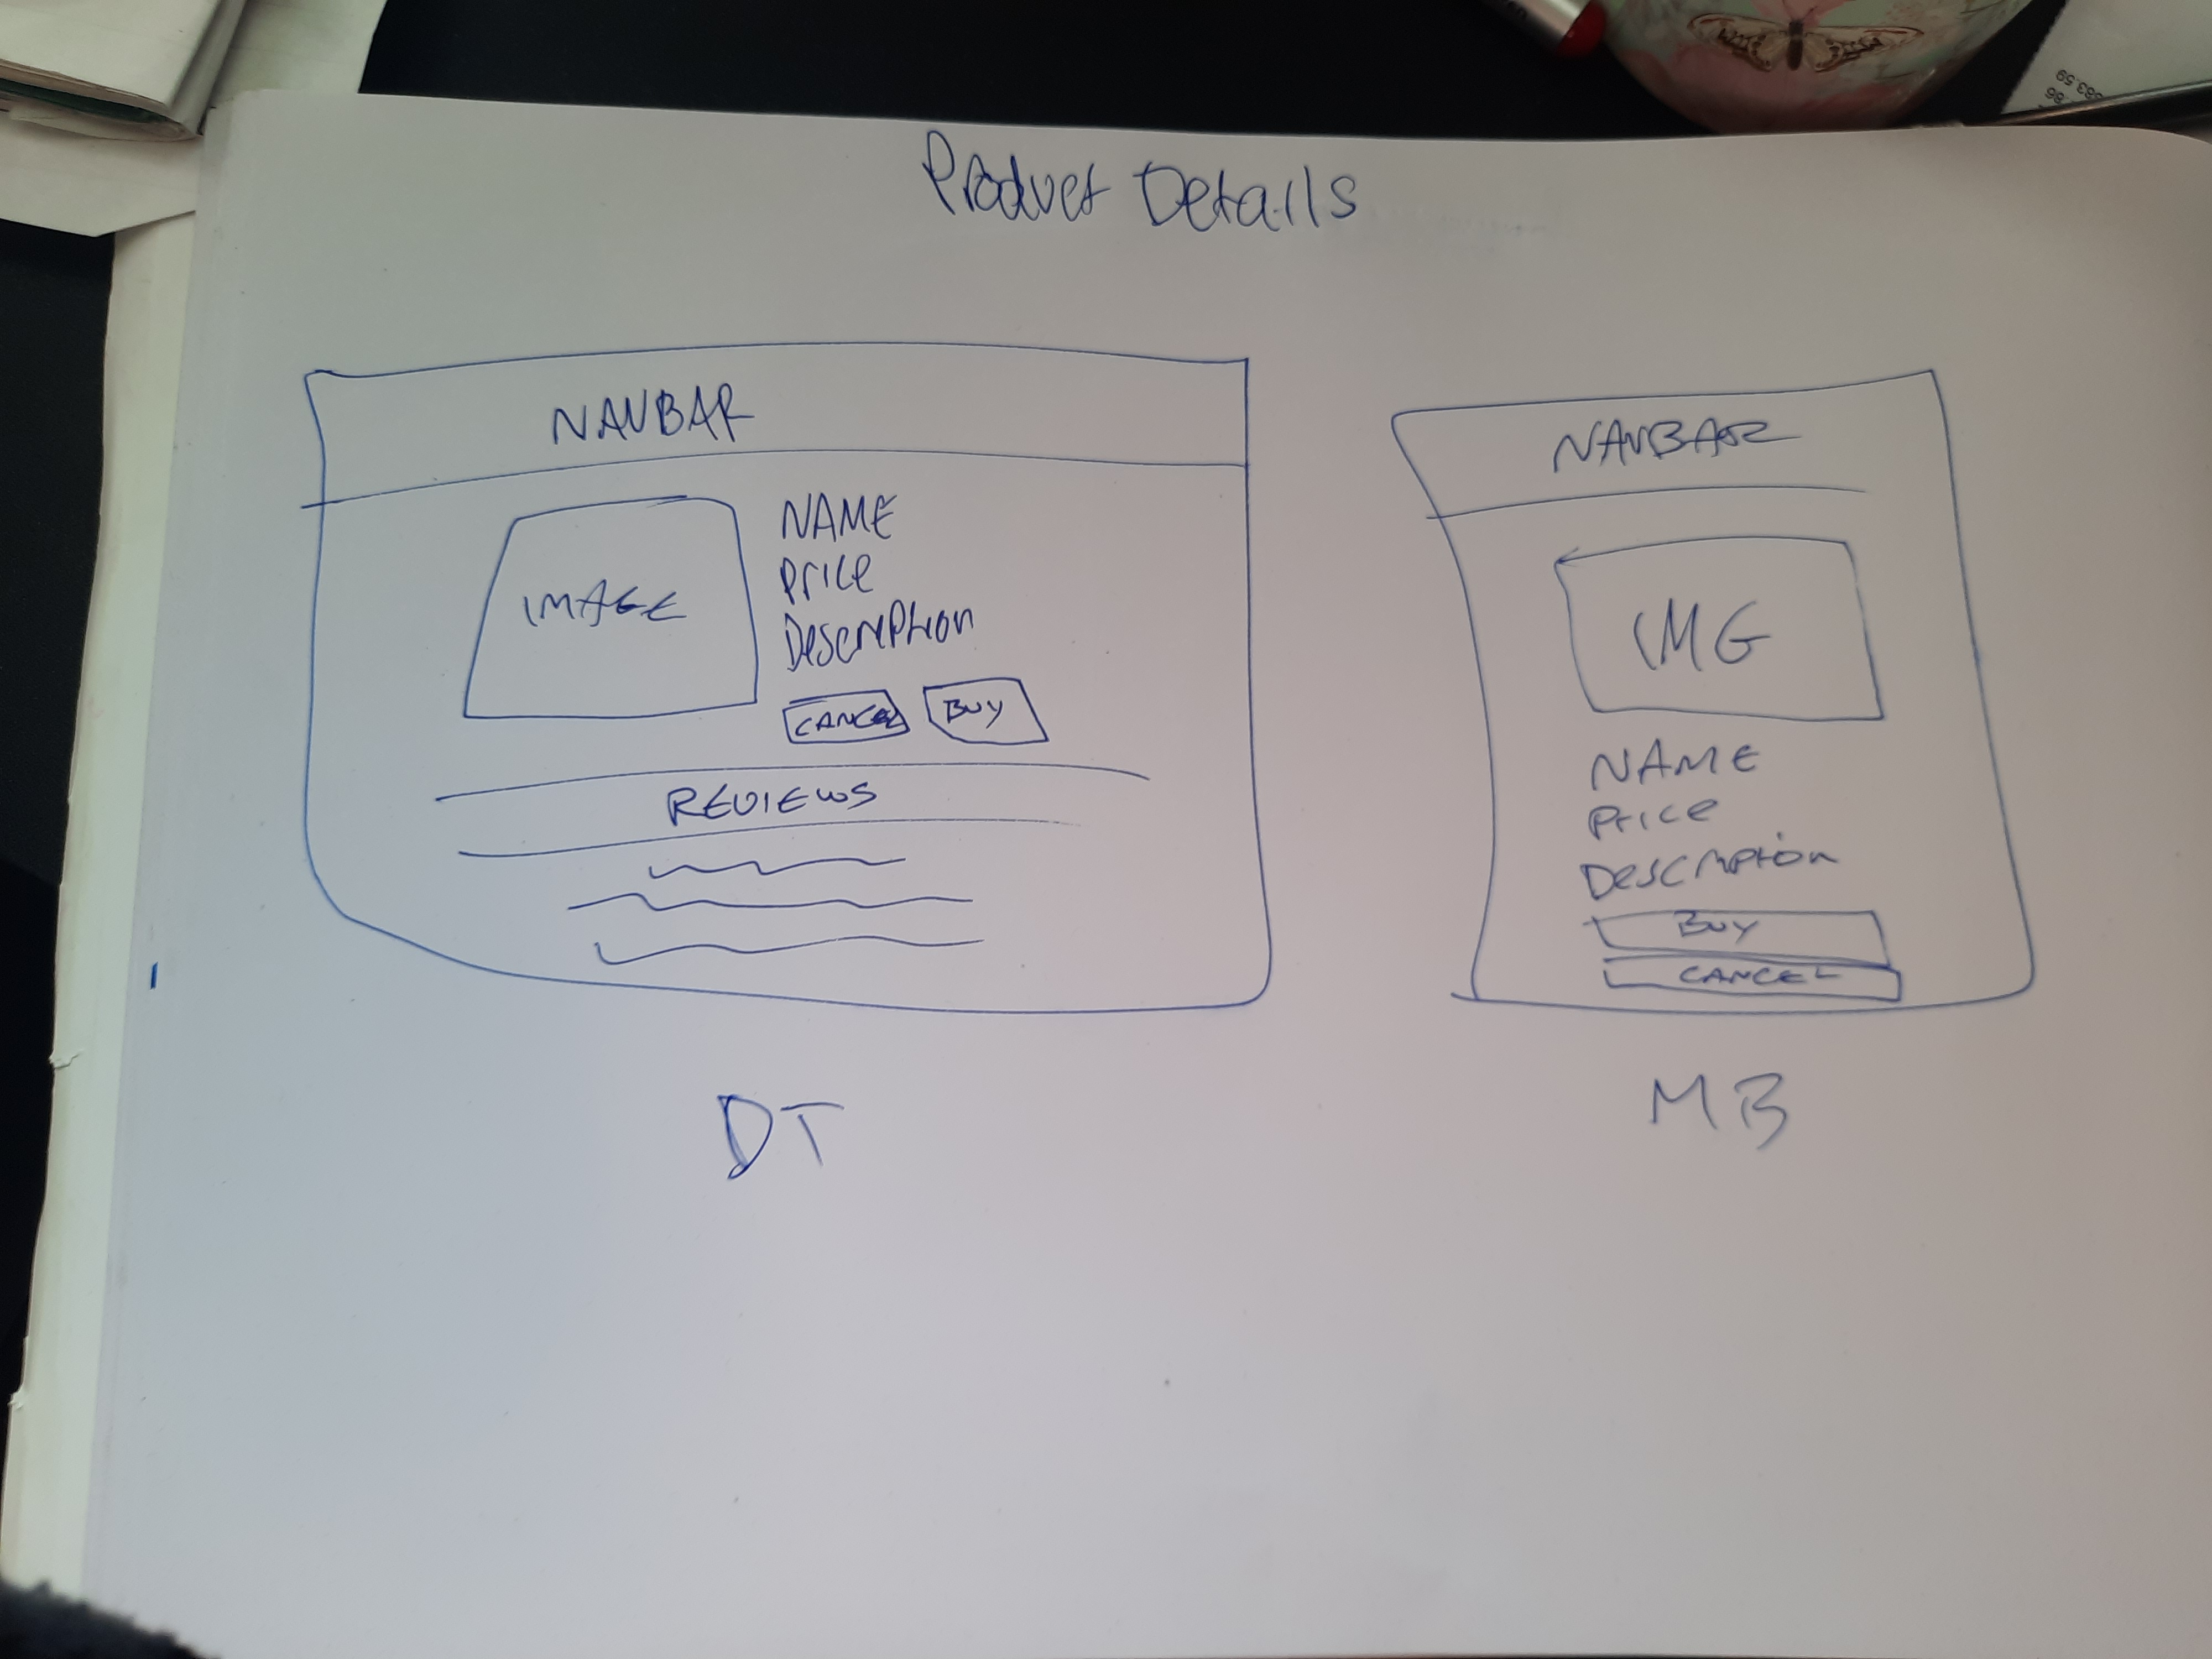 Product Details
NAVBAR
IMAGE
NAME
Price
Description
CANCEL
BUY
REVIEWS
DT
NAVBAR
IMG
NAME
Price
Description
BUY
CANCEL
MB